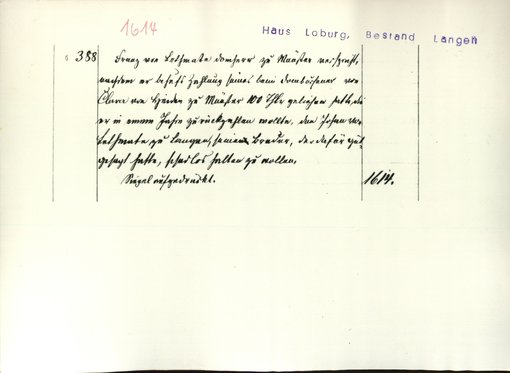 1614
Haus Loburg, Bestand Langen
388 Franz von Letmate domherr zu Münster verspricht,
nachdem er behufs Zahlung seines beim von
Clara von zu Münster 100 Thlr geliehen hatte, die
er in einem Jahre zurückzahlen wollte, den Johan von
Letmate zu Langen, seinen Bruder, der dafür gut
gesagt hatte, schadlos halten zu wollen.
Siegel aufgedrückt. 1614.